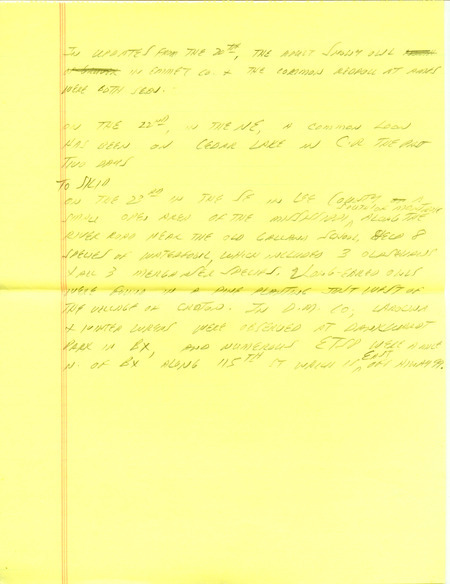 IN UPDATES FROM THE 20TH, THE ADULT SNOWY OWL
IN EMMET CO. & THE COMMON REDPOLL AT AMES
WERE BOTH SEEN.
ON THE 22ND, IN THE NE, A COMMON LOON
HAS BEEN ON CEDAR LAKE IN C.R. THE PAST
TWO DAYS
TO SKIP
ON THE 23RD IN THE SE IN LEE COUNTY IN A
SMALL OPEN AREA OF THE MISSISSIPPI ALONG THE
RIVER ROAD NEAR THE OLD GALLAND SCHOOL, 8
SPECIES OF WATERFOWL, WHICH INCLUDED 3
& ALL 3 MERGANSER SPECIES. 2 LONG-EARED OWLS
WERE FOUND IN A PINE PLANTING JUST WEST OF
THE VILLAGE OF CROTON. IN D.M. CO, CAROLINA
& WINTER WRENS WERE OBSERVED AT DANKWARDT
PARK IN BX, AND NUMEROUS ETSP WERE
N. OF BX ALONG 115TH ST WHICH IS EAST OFF HIGHWAY 99.